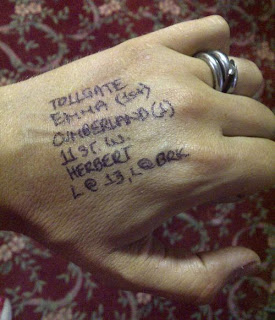 TOLLGATE
EMMA
CUMBERLAND
11 ST. W.
HERBERT
L @ 13, L @ BRK